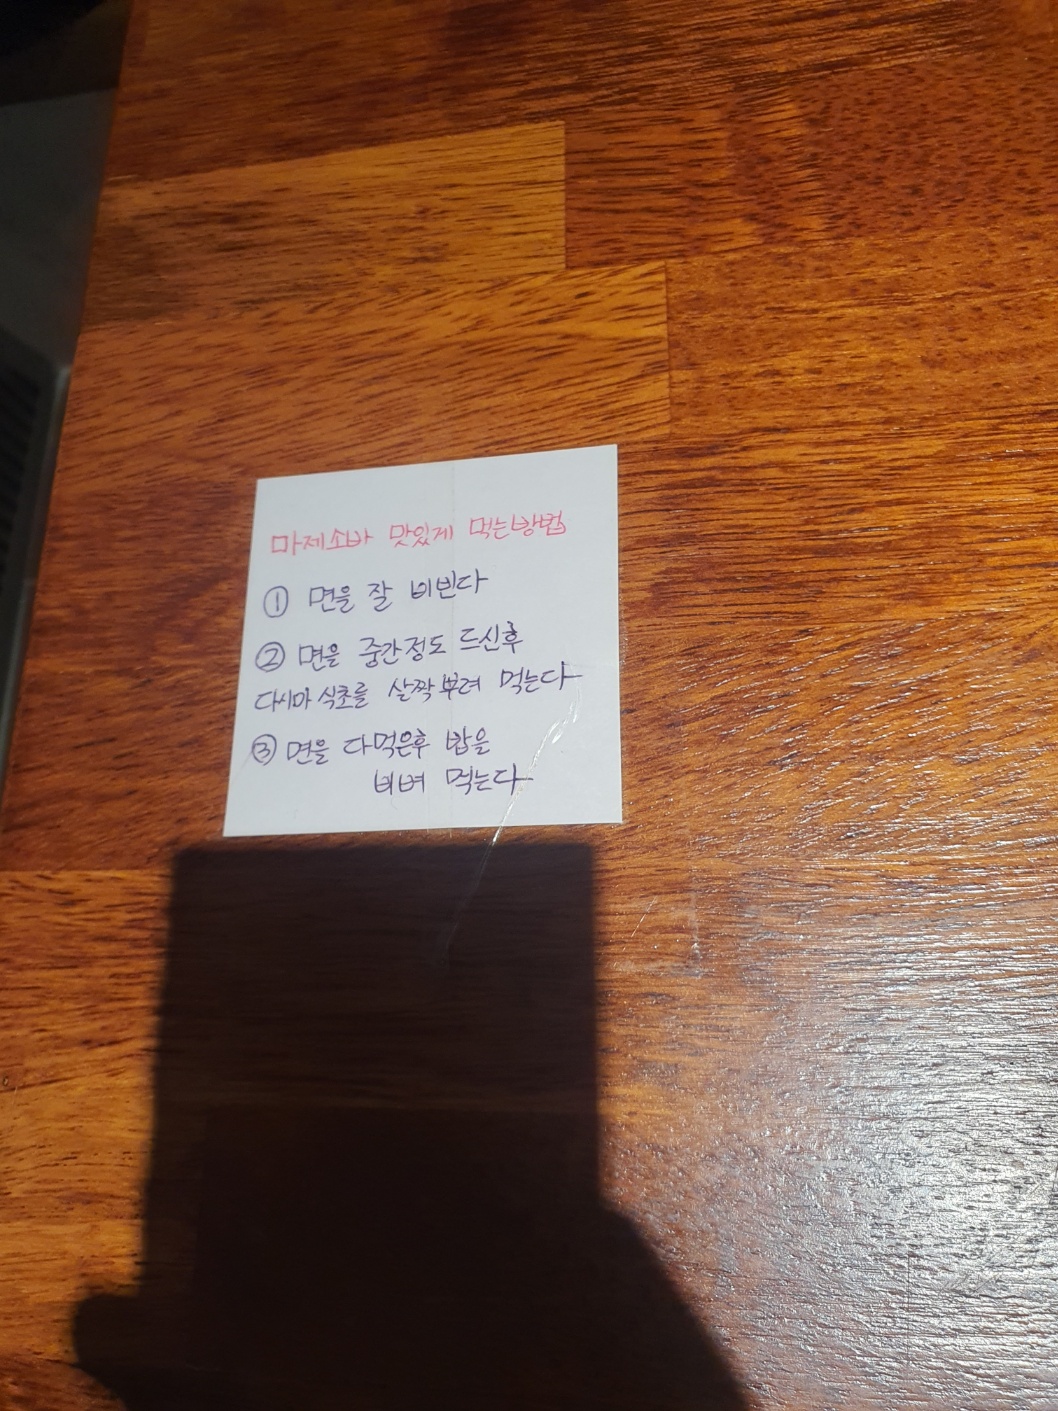 마제소바 맛있게 먹는방법
① 면을 잘 비빈다
② 면을 중간정도 드신후
다시마 식초를 살짝 뿌려 먹는다
③ 면을 다먹은후 밥을
비벼 먹는다